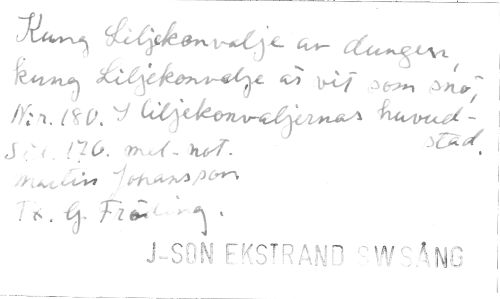 Kung Liljekonvalje av dungen,
kung Liljekonvalje är vit som snö,
N:r. 180. I liljekonvaljernas huvud-
stad.
Sid. 176. mel-not.
Martin Johansson
Tx. G. Fröding.
J-SON EKSTRAND SW SÅNG